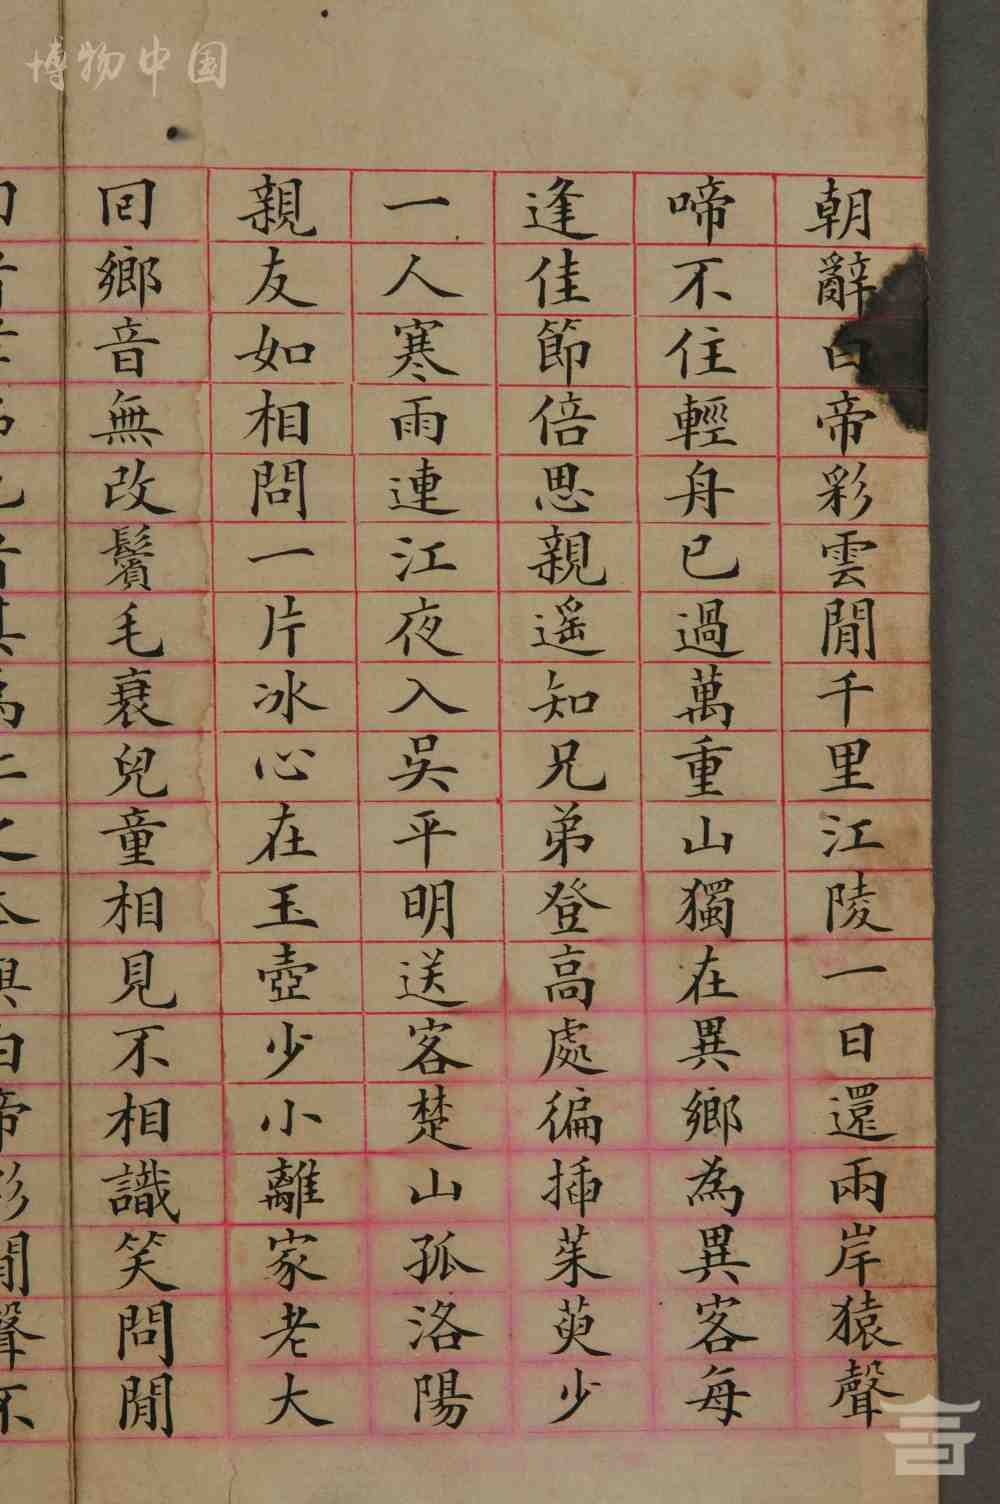 博物中国
朝辭白帝彩雲閒千里江陵一日還兩岸猿聲
啼不住輕舟已過萬重山獨在異鄉為異客每
逢佳節倍思親遥知兄弟登高處徧插茱萸少
一人寒雨連江夜入吳平明送客楚山孤洛陽
親友如相問一片冰心在玉壺少小離家老大
囘鄉音無改鬢毛衰兒童相見不相識笑問閒
者孝弟也者其為仁之本與白帝彩閒聲不